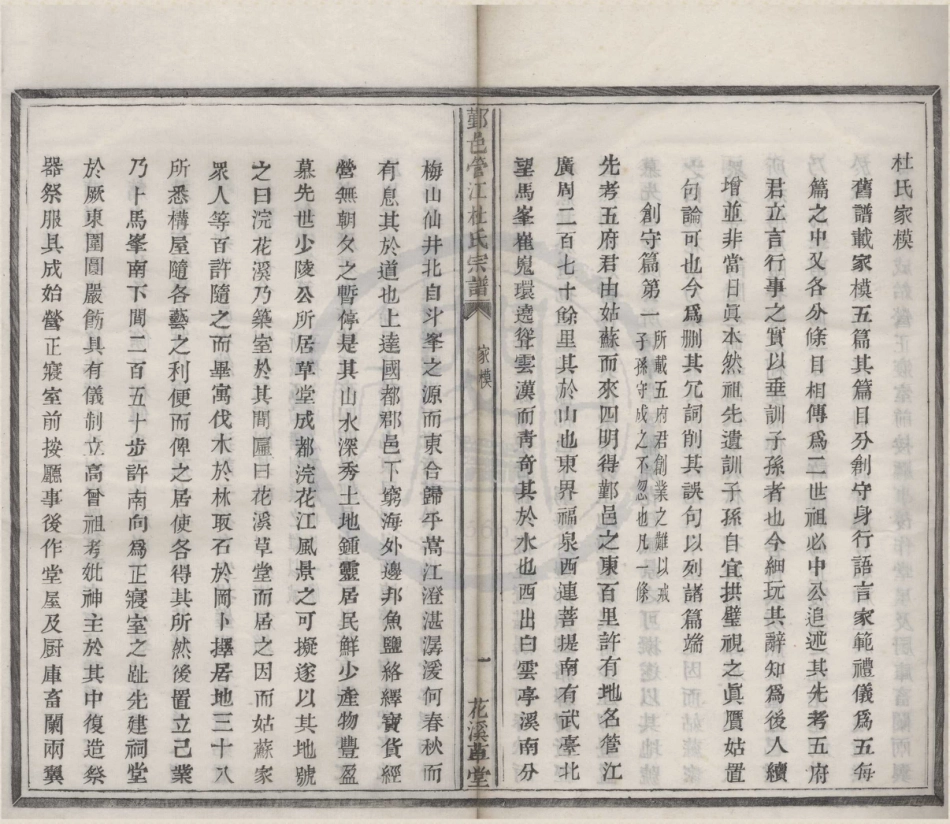 杜氏家模
舊譜載家模五篇其篇目分創守身行語言家範禮儀爲五每
篇之中又各分條目相傳爲二世祖必中公追述其先考五府
君立言行事之實以垂訓子孫者也今細玩其辭知爲後人續
增並非當日眞本然祖先遺訓子孫自宜拱璧視之眞贋姑置
勿論可也今爲删其冗詞削其誤句以列諸篇端
創守篇第一 所載五府君創業之難以戒
子孫守成之不忽也凡一條
先考五府君由姑蘇而來四明得鄞邑之東百里許有地名管江
廣周二百七十餘里其於山也東界福泉西連菩提南有武臺北
望馬峯崔嵬環遶聳雲漢而靑奇其於水也西出白雲亭溪南分
鄞邑管江杜氏宗譜
家模
一
花溪草堂
梅山仙井北自斗峯之源而東合歸乎嵩江澄湛潺湲何春秋而
有息其於道也上達國都郡邑下窮海外邊邦魚鹽絡繹寶貨經
營無朝夕之暫停是其山水深秀土地鍾靈居民鮮少產物豐盈
慕先世少陵公所居草堂成都浣花江風景之可擬遂以其地號
之曰浣花溪乃築室於其間匾曰花溪草堂而居之因而姑蘇家
衆人等百許隨之而畢寓伐木於林取石於岡卜擇居地三十八
所悉構屋隨各藝之利便而俾之居使各得其所然後置立己業
乃卜馬峯南下間二百五十步許南向爲正寢室之趾先建祠堂
於厥東圍圓嚴飭具有儀制立高曾祖考妣神主於其中復造祭
器祭服具成始營正寢室前按廳事後作堂屋及厨庫畜闌兩翼